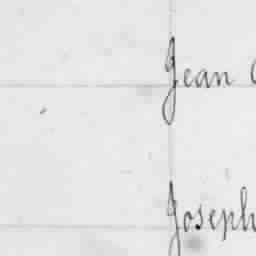 Jean
Joseph